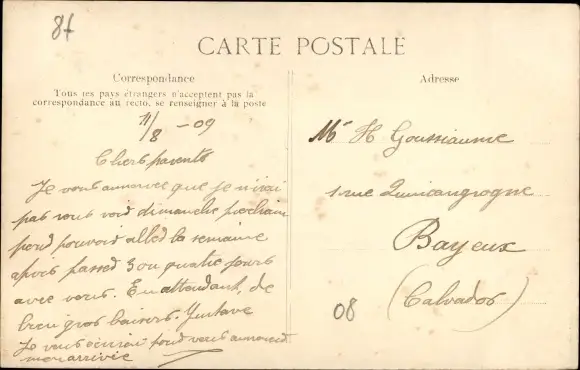 8f
CARTE POSTALE
Correspondance
Tous les pays étrangers n'acceptent pas la
correspondance au recto, se renseigner à la poste
Adresse
11/8 - 09
Chers parents
Je vous annonce que je n'irai
pas vous voir dimanche prochain
pour pouvoir aller la semaine
après passer 3 ou quatre jours
avec vous. En attendant, de
bien gros baisers. Gustave
Je vous écrirai pour vous annoncer
mon arrivée
Mr H Goussiaume
1 rue Quincangrogne
Bayeux
(Calvados)
08